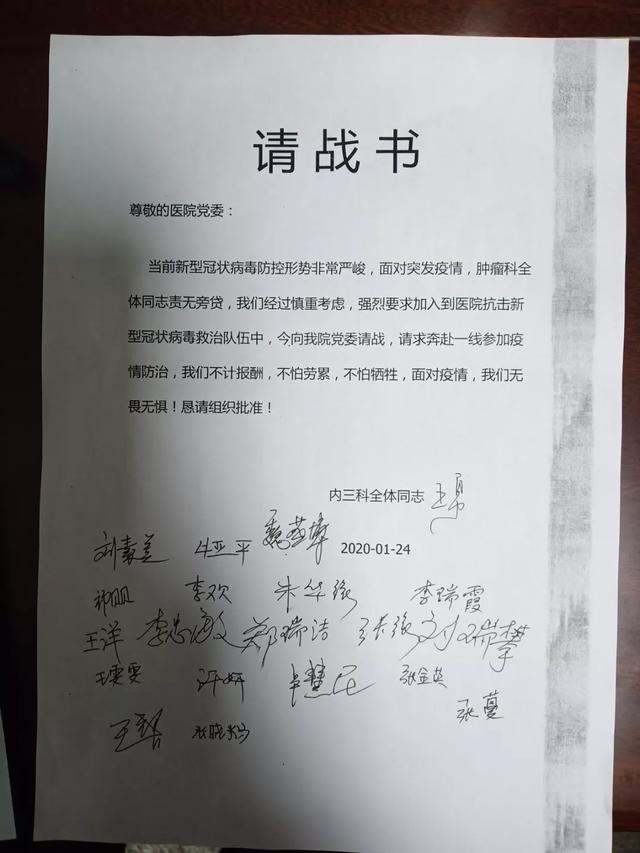 请战书
尊敬的医院党委：
当前新型冠状病毒防控形势非常严峻，面对突发疫情，肿瘤科全
体同志责无旁贷，我们经过慎重考虑，强烈要求加入到医院抗击新
型冠状病毒救治队伍中，今向我院党委请战，请求奔赴一线参加疫
情防治，我们不计报酬，不怕劳累，不怕牺牲，面对疫情，我们无
畏无惧！恳请组织批准！
内三科全体同志
2020-01-24
李欢 李瑞霞
王洋 李忠敏 郑瑞洁 张缘 刘瑞攀
许妍 张金英
张蔓